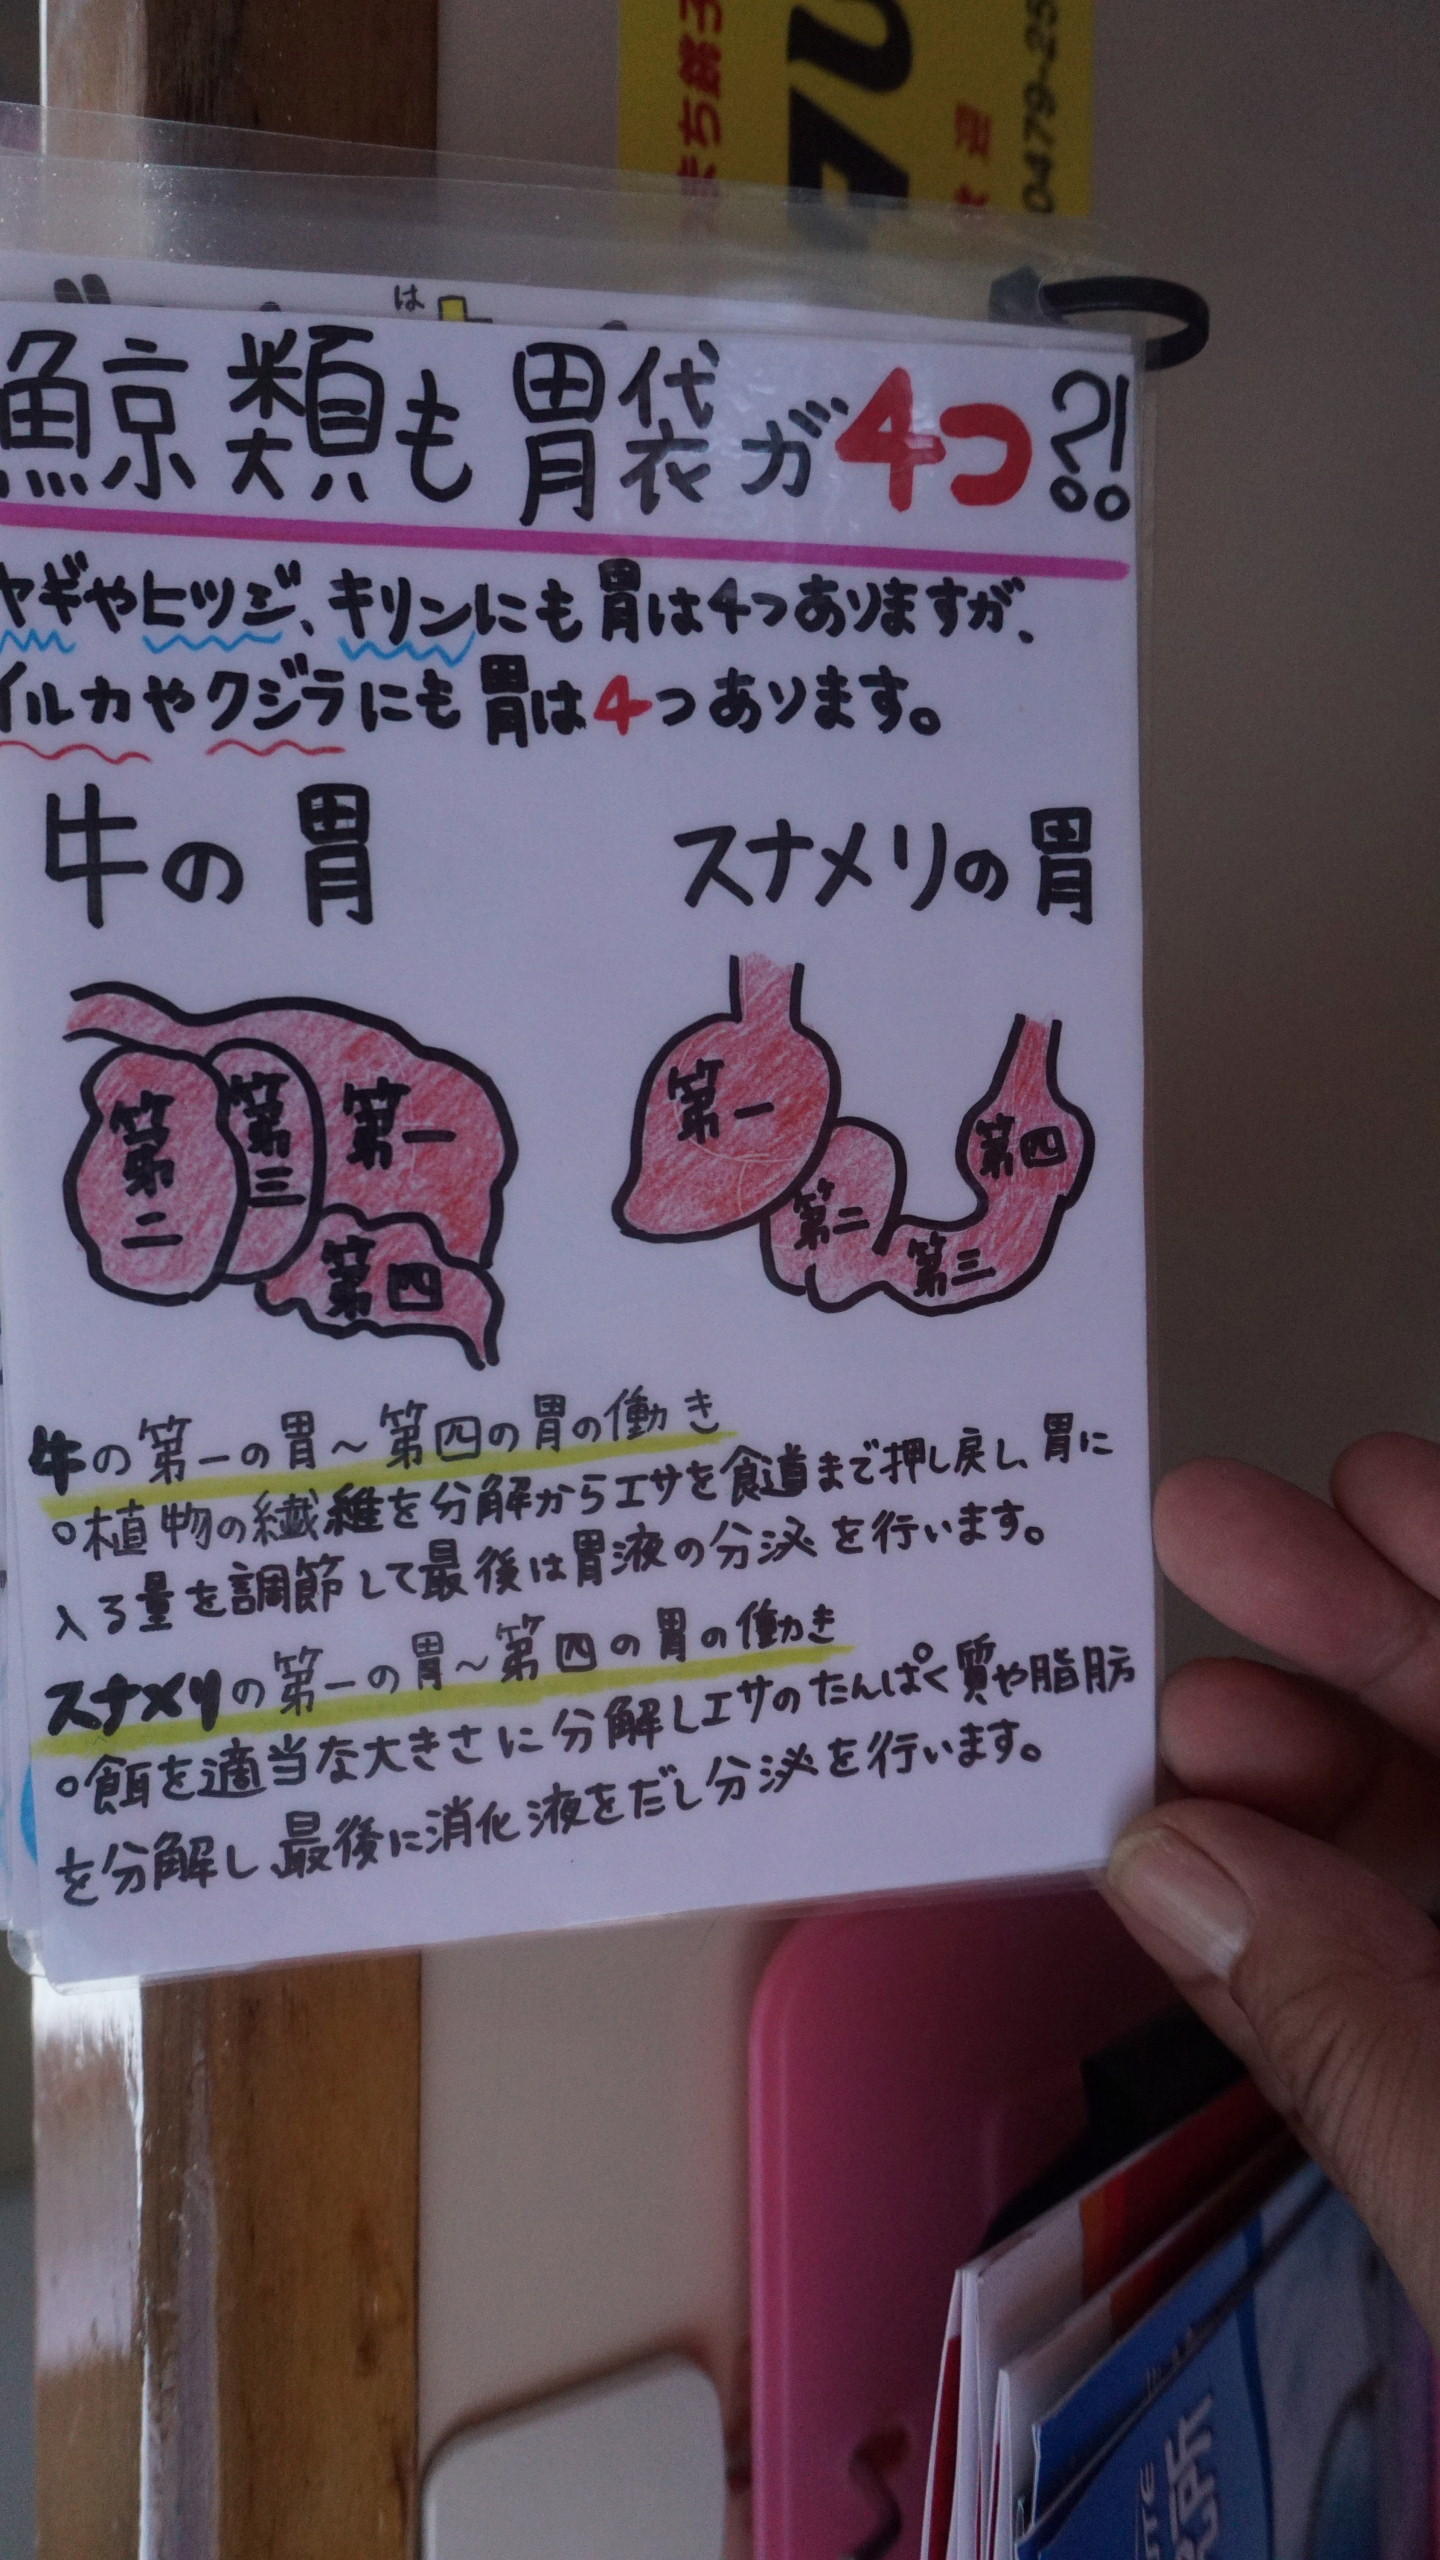 まち銚子
0479-25
は
鯨類も胃袋が4つ?!
ヤギやヒツジ、キリンにも胃は4つありますが、
イルカやクジラにも胃は4つあります。
牛の胃
スナメリの胃
第一
第二
第三
第四
第一
第二
第三
第四
牛の第一の胃～第四の胃の働き
○植物の繊維を分解からエサを食道まで押し戻し、胃に
入る量を調節して最後は胃液の分泌を行います。
スナメリの第一の胃～第四の胃の働き
○餌を適当な大きさに分解しエサのたんぱく質や脂肪
を分解し、最後に消化液をだし分泌を行います。